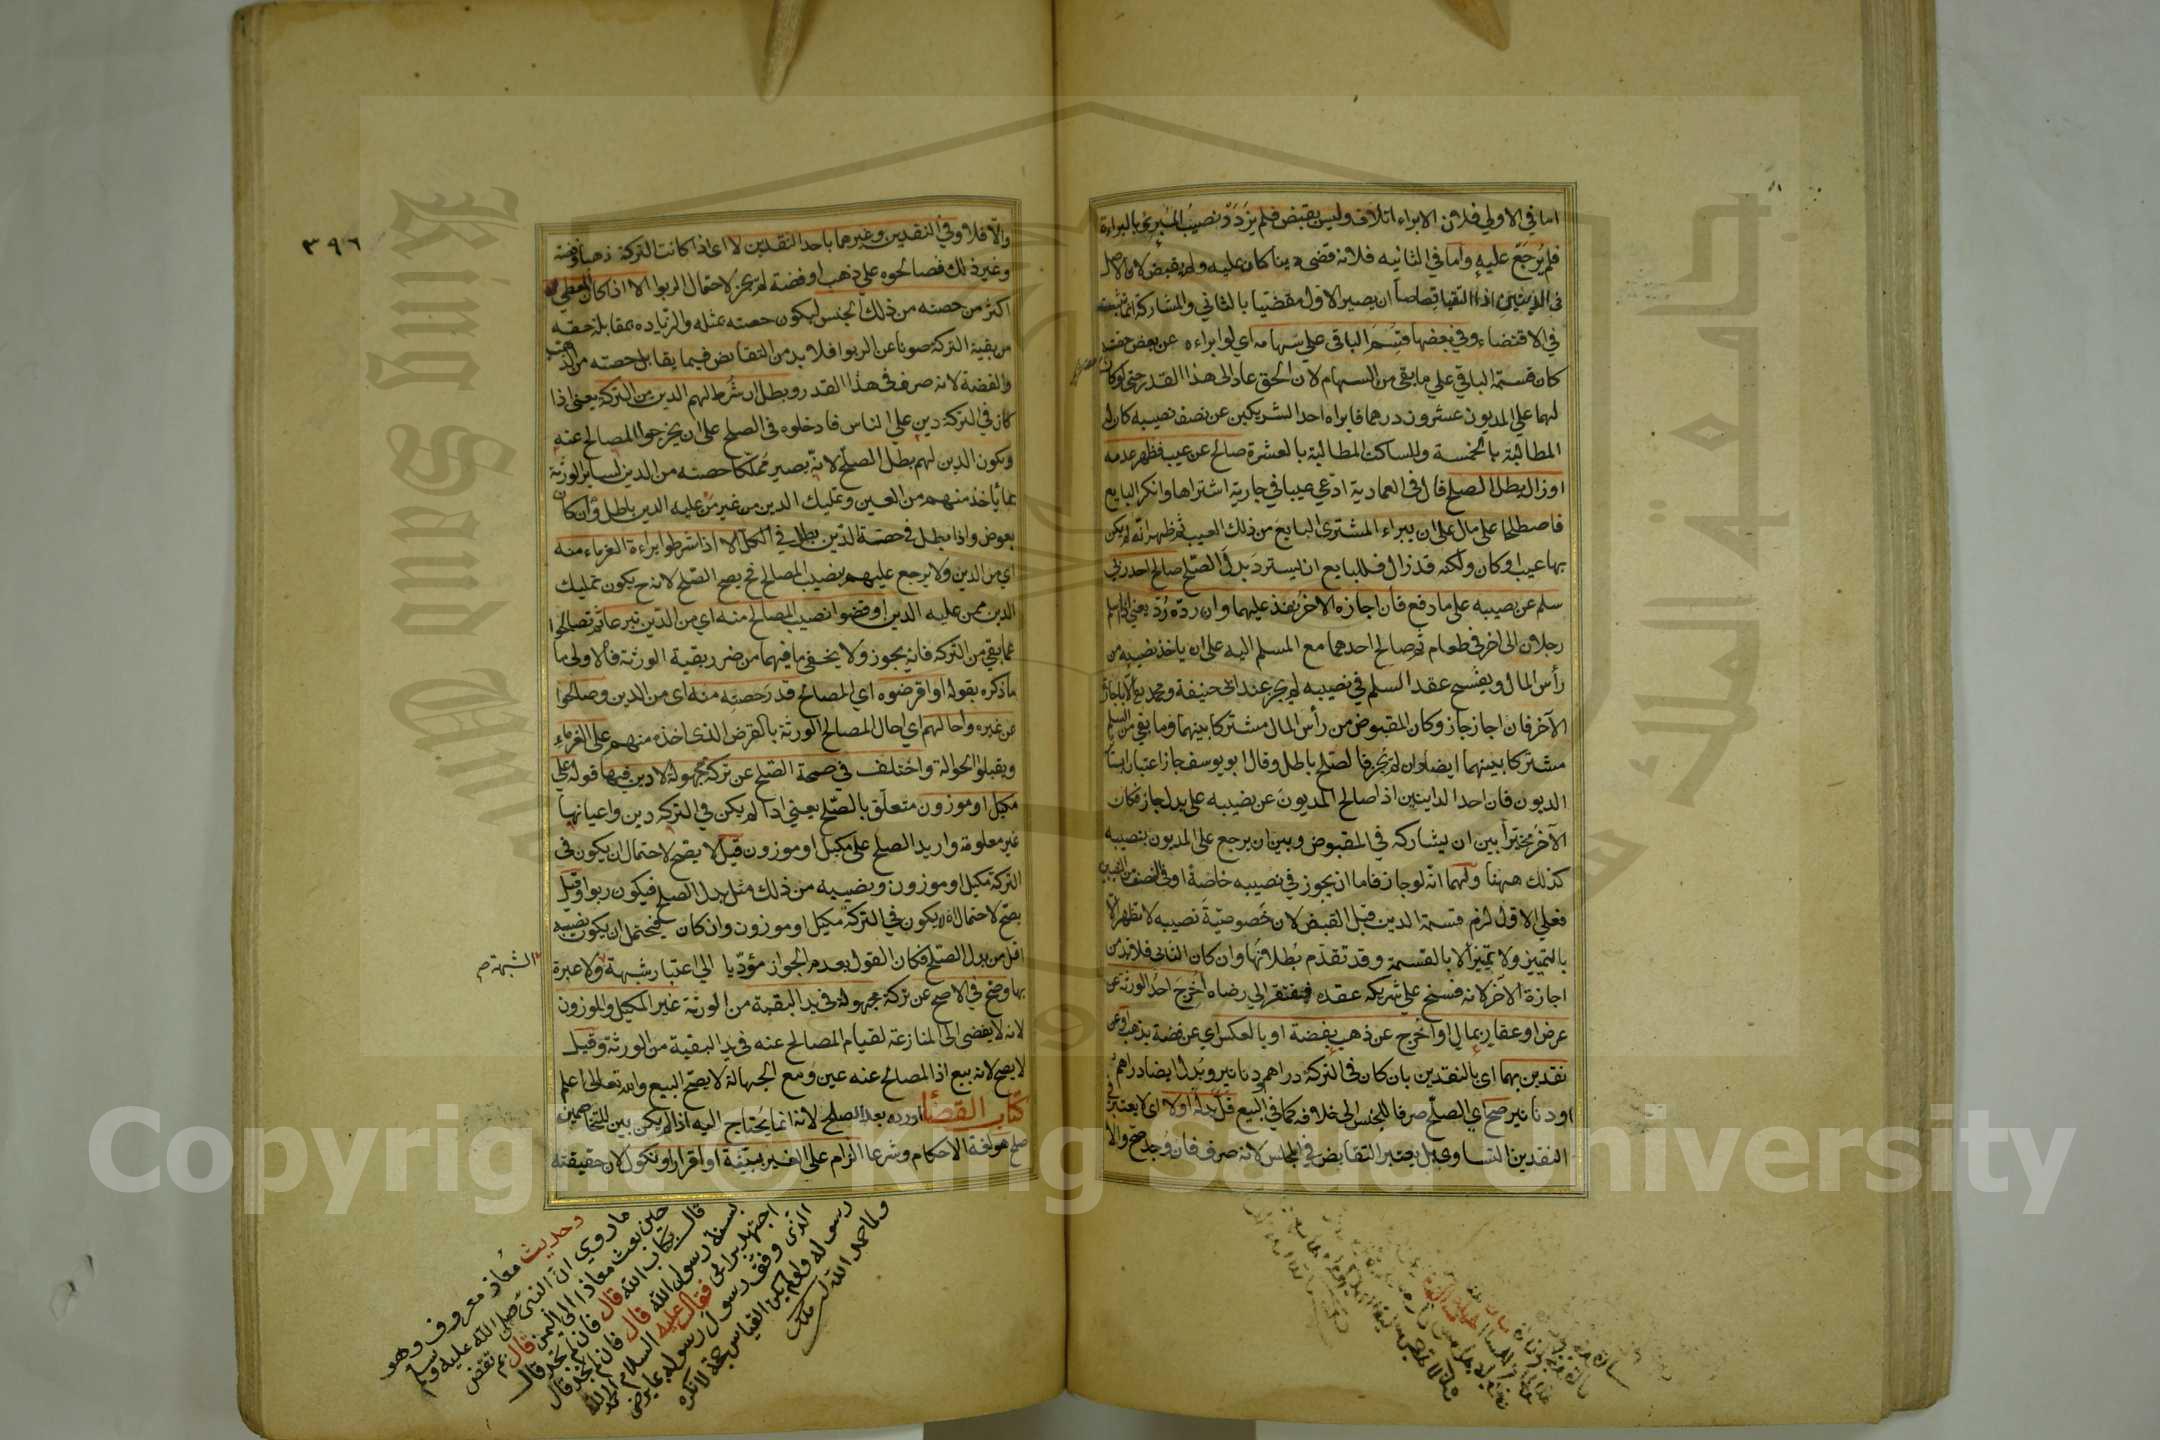 اما في الاولي فلان الابراء اتلاف وليس بقبض فلم يزدد نصيب المبرئ بالبراءة
فلم يرجع عليه واما في الثانيه فلانه قضى دينا كان عليه ولم يقبض لان الاصل
في الدينين اذا التقيا قصاصا ان يصير الاول مقضيا بالثاني والمشاركة انما تثبت
في الاقتضاء وفي بعضها قسم الباقي علي سهامه اي لو ابراءه عن بعض حقه
كان قسمة الباقي علي ما بقي من السهام لان الحق عاد الى هذا القدر حتى لو كان
لهما علي المديون عشرون درهما فابراه احد الشريكين عن نصف نصيبه كان له
المطالبة بالخمسة وللساكت المطالبة بالعشرة صالح عن عيب فظهر عدمه
او زال بطل الصلح قال في العمادية ادعي عيبا في جارية اشتراها وانكر البايع
فاصطلحا على مال على ان يبراء المشتري البايع من ذلك العيب ثم ظهر انه لم يكن
بها عيب او كان ولكنه قد زال فللبايع ان يسترد بدل الصلح صالح احد ربي
سلم عن نصيبه على ما دفع فان اجازه الاخر نفذ عليهما وان رده رد يعني اذا سلم
رجلان الى اخر في طعام ثم صالح احدهما مع المسلم اليه على ان ياخذ نصيبه من
رأس المال ويفسح عقد السلم في نصيبه لم يجز عند ابي حنيفة ومحمد الا باجازة
الآخر فان اجاز جاز وكان المقبوض من رأس المال مشتركا بينهما وما بقي من السلم
مشتركا بينهما ايضا وان لم يجز فالصلح باطل وقال ابو يوسف جاز اعتبارا بسائر
الديون فان احد الداينين اذا صالح المديون عن نصيبه على بدل جاز فكان
الآخر مخيرا بين ان يشاركه في المقبوض وبين ان يرجع على المديون بنصيبه
كذلك ههنا ولهما انه لو جاز فاما ان يجوز في نصيبه خاصة او في النصف من النصيبين
فعلي الاول لزم قسمة الدين قبل القبض لان خصوصية نصيبه لا تظهر الا
بالتمييز ولا تميز الا بالقسمة وقد تقدم بطلانها وان كان الثاني فلا بد من
اجازة الآخر لانه فسخ علي شريكه عقده فيفتقر الي رضاه اخرج احد الورثة عن
عرض او عقار بمال او اخرج عن ذهب بفضة او بالعكس اي عن فضة بذهب او عن
نقدين بهما اي بالنقدين بان كان في التركة دراهم ودنانير وبدل ايضا دراهم
ودنانير صح اي الصلح صرفا للجنس الى خلافه كما في البيع قل بدله اولا اي لا يعتبر في
النقدين التساوي بل يعتبر التقابض في المجلس لانه صرف فان وجد صح والا
٣٩٦
والا فلا وفي النقدين وغيرهما باحد النقدين لا اي اذا كانت التركة ذهبا وفضة
وغير ذلك فصالحوه علي ذهب او فضة لم يجز لاحتمال الربوا الا اذا كان المعطي له
اكثر من حصته من ذلك الجنس ليكون حصته بمثله والزياده بمقابلة حقه
من بقية التركة صونا عن الربوا فلا بد من التقابض فيما يقابل حصته من الذهب
والفضة لانه صرف في هذا القدر وبطل ان شرط لهم الدين من التركة يعني اذا
كان في التركة دين علي الناس فادخلوه في الصلح على ان يخرجوا المصالح عنه
ويكون الدين لهم بطل الصلح لانه يصير مملكا حصته من الدين لساير الورثة
بما يأخذ منهم من العين وتمليك الدين من غير من عليه الدين باطل وان كان
بعوض واذا بطل في حصة الدين بطل في الكل الا اذا شرطوا براءة الغرماء منه
اي من الدين ولا يرجع عليهم بنصيب المصالح فح يصح الصلح لانه ح يكون تمليك
الدين ممن عليه الدين او قضوا نصيب المصالح منه اي من الدين تبرعا ثم تصالحوا
عما بقي من التركة فانه يجوز ولا يخفى ما فيهما من ضرر بقية الورثة فالاولى ما
ما ذكره بقوله او اقرضوه اي المصالح قدر حصته منه اي من الدين وصالحوا
عن غيره واحالهم اي احال المصالح الورثة بالقرض الذي اخذه منهم على الغرماء
ويقبلوا الحوالة واختلف في صحة الصلح عن تركة مجهولة لا دين فيها قوله علي
مكيل او موزون متعلق بالصلح يعني اذا لم يكن في التركة دين واعيانها
غير معلومة واريد الصلح على مكيل او موزون قيل لا يصح لاحتمال ان يكون في
التركة مكيل او موزون ونصيبه من ذلك مثل بدل الصلح فيكون ربوا وقيل
يصح لاحتمال ان لا يكون في التركة مكيل او موزون وان كان فيحتمل ان يكون نصيبه
اقل من بدل الصلح فكان القول بعدم الجواز مؤديا الي اعتبار شبهة ولا عبرة
الشبهة صح
بها وصح في الاصح عن تركة مجهولة في يد البقية من الورثة غير المكيل والموزون
لانه لا يفضى الى المنازعة لقيام المصالح عنه في يد البقية من الورثة وقيل
لا يصح لانه بيع اذ المصالح عنه عين ومع الجهالة لا يصح البيع والله تعالى اعلم
كتاب القضاء اورده بعد الصلح لانه انما يحتاج اليه اذا لم يكن بين المتخاصمين
صلح هو لغة الاحكام وشرعا الزام على الغير ببينة او اقرار او نكول لان حقيقته
وحديث معاذ معروف وهو
ما روي ان النبي صلى الله عليه وسلم
حين بعث معاذا الى اليمن قال بم تقض
قال بكتاب الله قال فان لم تجد قال
بسنة رسول الله قال فان لم تجد قال
اجتهد برايى فقال عليه السلام الحمد لله
الذي وفق رسول رسوله بما يرضى
رسوله ولو لم يكن القياس حجة لانكره
ولما حمد الله
Copyright © King Saud University
King Saud University
جامعة الملك سعود